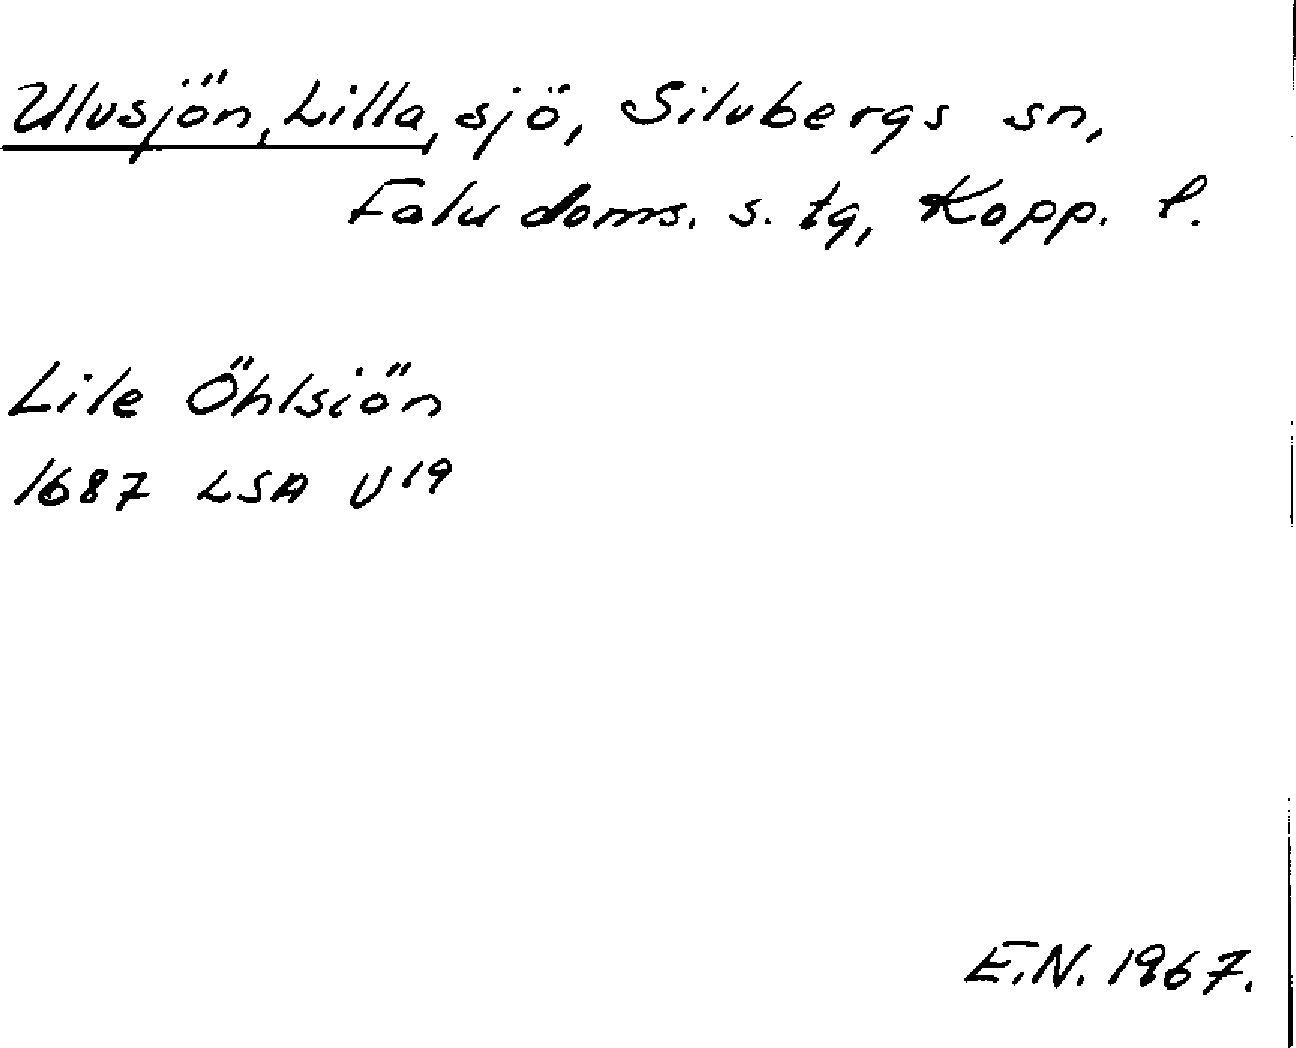 Ulvsjön, Lilla, sjö, Silvbergs sn,
Falu doms. s. tg, Kopp. l.
Lile Öhlsiön
1687 LSA U19
E.N. 1967.